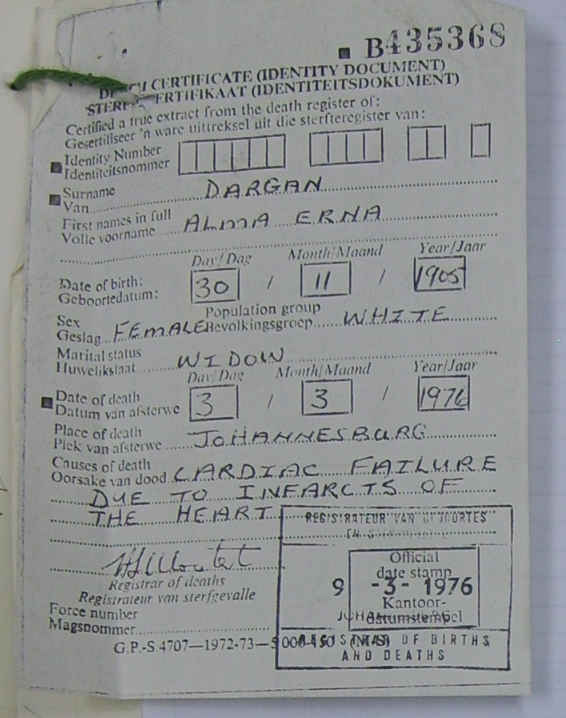 B435368
DEATH CERTIFICATE (IDENTITY DOCUMENT)
STERFSERTIFIKAAT (IDENTITEITSDOKUMENT)
Certified a true extract from the death register of:
Gesertifiseer 'n ware uittreksel uit die sterfteregister van:
Identity Number
Identiteitsnommer
Surname
Van DARGAN
First names in full
Volle voorname ALMA ERNA
Day/Dag Month/Maand Year/Jaar
Date of birth:
Geboortedatum: 30 / 11 / 1905
Sex Population group
Geslag FEMALE Bevolkingsgroep WHITE
Marital status
Huwelikstaat WIDOW
Day/Dag Month/Maand Year/Jaar
Date of death
Datum van afsterwe 3 / 3 / 1976
Place of death
Plek van afsterwe JOHANNESBURG
Causes of death
Oorsake van dood CARDIAC FAILURE
DUE TO INFARCTS OF
THE HEART
REGISTRATEUR VAN GEBOORTES
Official
date stamp
9 -3- 1976
Kantoor-
datumstempel
REGISTRAR OF BIRTHS
AND DEATHS
Registrar of deaths
Registrateur van sterfgevalle
Force number
Magsnommer
G.P.-S.4707—1972-73—